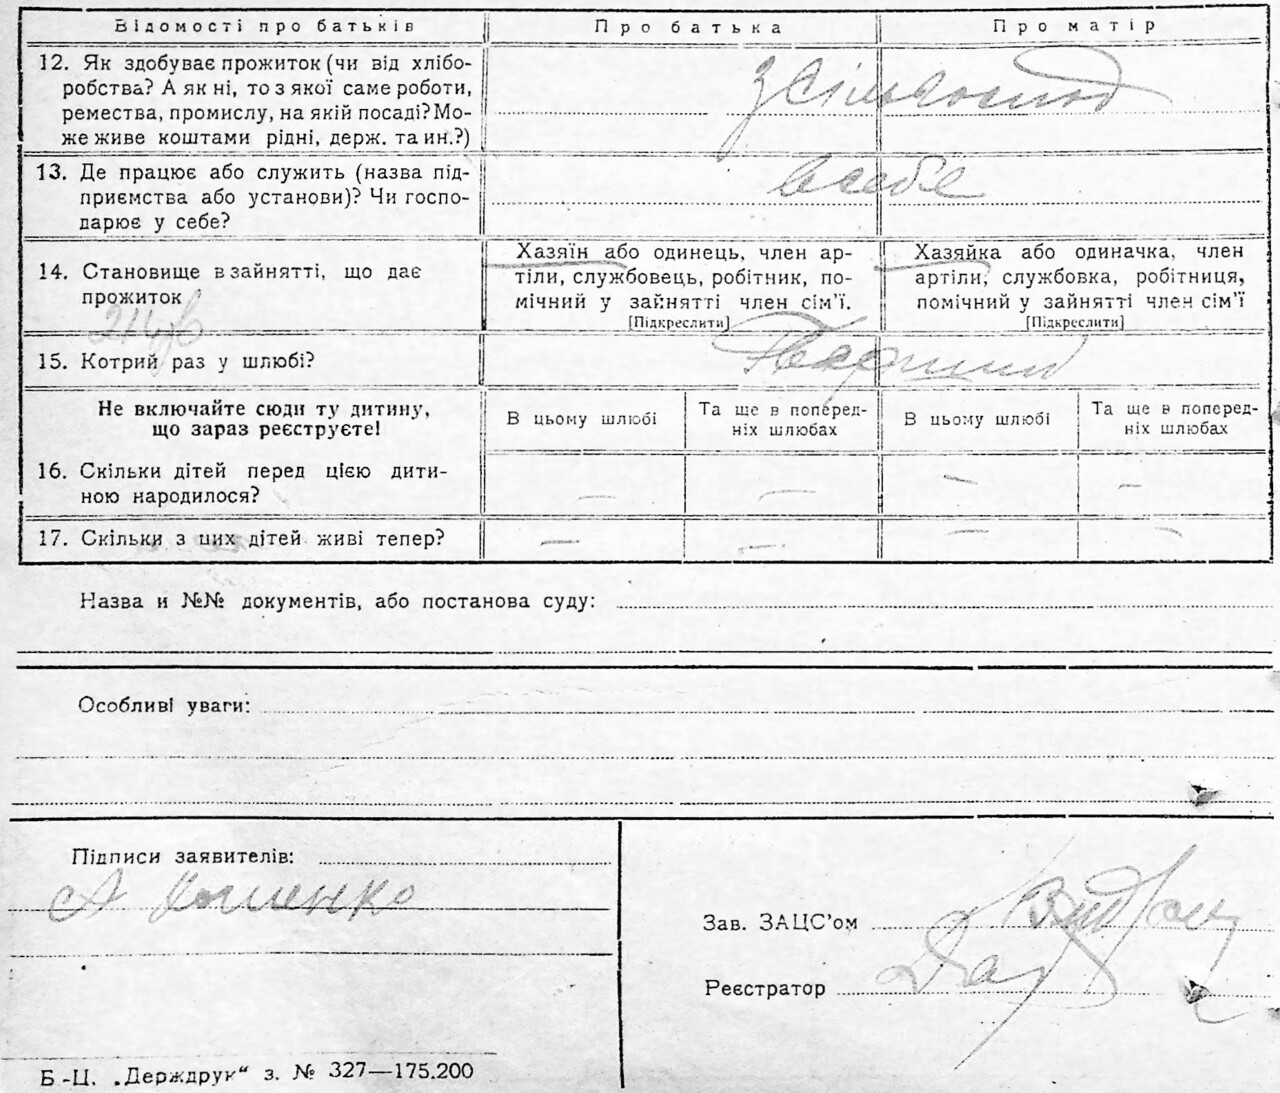 Відомості про батьків Про батька Про матір
12. Як здобуває прожиток (чи від хлібо-
робства? А як ні, то з якої саме роботи,
ремества, промислу, на якій посаді? Мо-
же живе коштами рідні, держ. та ин.?)
з сільгоспод
13. Де працює або служить (назва під-
приємства або установи)? Чи госпо-
дарює у себе?
в себе
14. Становище в зайнятті, що дає
прожиток
Хазяїн або одинець, член ар-
тіли, службовець, робітник, по-
мічний у зайнятті член сім’ї.
[Підкреслити]
Хазяйка або одиначка, член
артіли, службовка, робітниця,
помічний у зайнятті член сім’ї
[Підкреслити]
15. Котрий раз у шлюбі?
Перший
Не включайте сюди ту дитину,
що зараз реєструєте!
В цьому шлюбі
Та ще в поперед-
ніх шлюбах
В цьому шлюбі
Та ще в поперед-
ніх шлюбах
16. Скільки дітей перед цією дити-
ною народилося?
— — — —
17. Скільки з цих дітей живі тепер?
— — — —
Назва и №№ документів, або постанова суду:
Особливі уваги:
Підписи заявителів:
Зав. ЗАЦС’ом
Реєстратор
Б.-Ц. „Держдрук“ з. № 327—175.200